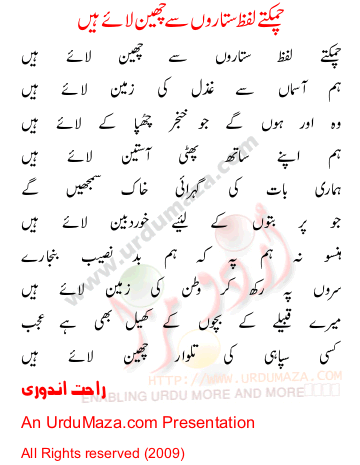 چمکتے لفظ ستاروں سے چھین لائے ہیں
چمکتے لفظ ستاروں سے چھین لائے ہیں
ہم آسماں سے غذل کی زمین لائے ہیں
وہ اور ہوں گے جو خنجر چھپا کے لائے ہیں
ہم اپنے ساتھ پھٹی آستین لائے ہیں
ہماری بات کی گہرائی خاک سمجھیں گے
جو پر بتوں کے لئیے خوردبین لائے ہیں
ہنسو نہ ہم پہ کہ ہم بد نصیب بنجارے
سروں پہ رکھ کر وطن کی زمین لائے ہیں
میرے قبیلے کے بچوں کے کھیل بھی ہے عجب
کسی سپاہی کی تلوار چھین لائے ہیں
راحت اندوری
www.urdumaza.com
HTTP://WWW.URDUMAZA.COM
ENABLING URDU MORE AND MORE
An UrduMaza.com Presentation
All Rights reserved (2009)